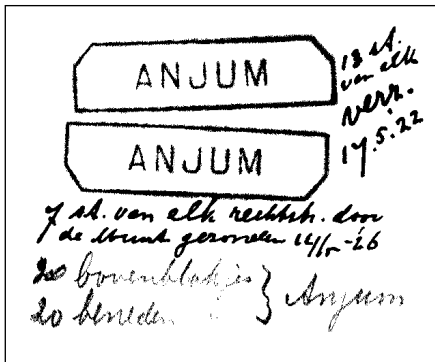 ANJUM
ANJUM
18 st.
van elk
verz.
17.5.22
7 st. van elk rechtstr. door
de Munt gezonden 14/5-26
20 bovenblokjes
20 beneden
Anjum